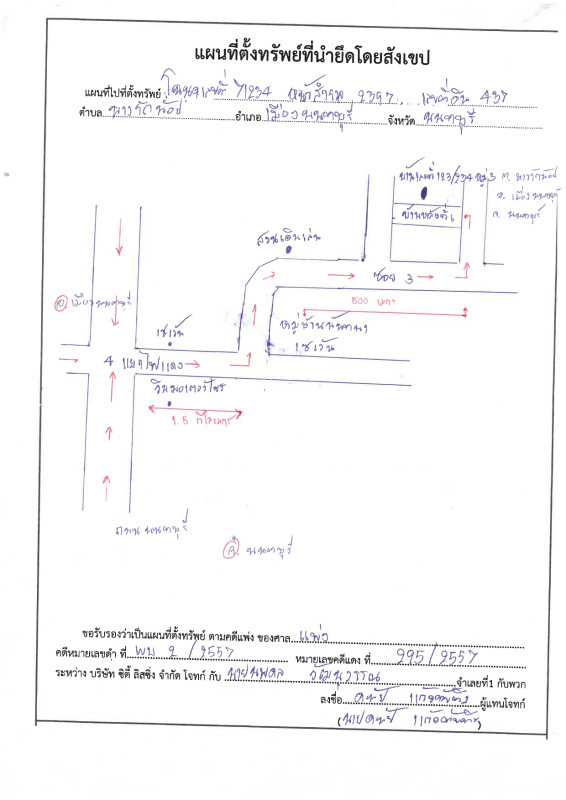 แผนที่ตั้งทรัพย์ที่นำยึดโดยสังเขป
แผนที่ไปที่ตั้งทรัพย์ โฉนดเลขที่ 71234 หน้าสำรวจ 2397 เลขที่ดิน 437
ตำบล บางรักน้อย อำเภอ เมืองนนทบุรี จังหวัด นนทบุรี
บ้านเลขที่ 123/234 หมู่ 3 ต. บางรักน้อย
อ. เมืองนนทบุรี
จ. นนทบุรี
บ้านหลังที่
สวนเดินเล่น
ซอย 3
500 เมตร
อ. เมืองนนทบุรี
เซเว่น
หมู่บ้าน
เซเว่น
4 แยกไฟแดง
วินมอเตอร์ไซร์
1.5 กิโลเมตร
ถนน นนทบุรี
นนทบุรี
ขอรับรองว่าเป็นแผนที่ตั้งทรัพย์ ตามคดีแพ่ง ของศาล แพ่ง
คดีหมายเลขดำ ที่ พบ 2 / 2557 หมายเลขคดีแดง ที่ 225 / 2557
ระหว่าง บริษัท ซิตี้ ลิสซิ่ง จำกัด โจทก์ กับ นายนพดล วัฒนุวรรณ จำเลยที่1 กับพวก
ลงชื่อ ดนัย ผู้แทนโจทก์
(นายดนัย )